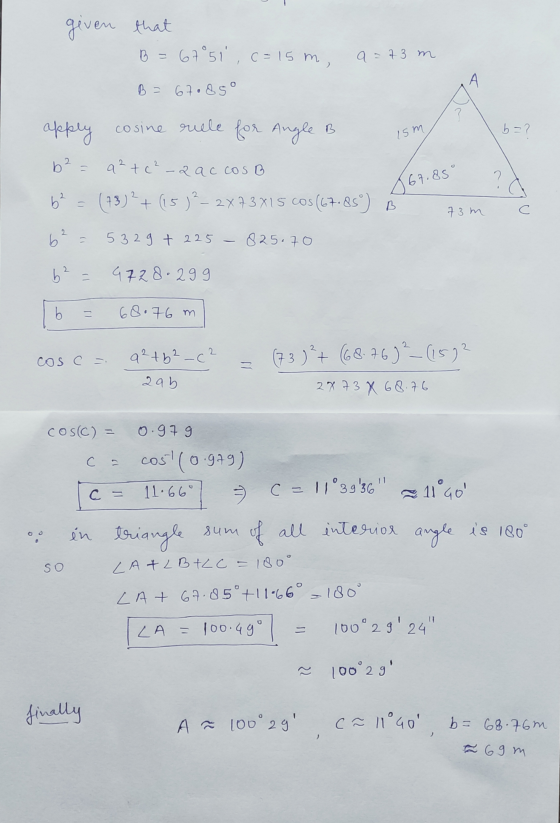 given that
B = 67°51', c = 15 m, a = 73 m
B = 67.85°
apply cosine rule for Angle B
b² = a² + c² - 2ac cosB
b² = (73)² + (15)² - 2×73×15 cos(67.85°)
b² = 5329 + 225 - 825.70
b² = 4728.299
b = 68.76 m
A
?
15m
b=?
67.85°
?
B
73 m
C
cos C = (a²+b²-c²)/2ab = ((73)²+(68.76)²-(15)²)/(2×73×68.76)
cos(C) = 0.979
C = cos⁻¹(0.979)
C = 11.66° ⇒ C = 11°39'36" ≈ 11°40'
∵ in triangle sum of all interior angle is 180°
so ∠A+∠B+∠C = 180°
∠A + 67.85°+11.66° = 180°
∠A = 100.49° = 100°29'24"
≈ 100°29'
finally
A ≈ 100°29', C ≈ 11°40', b = 68.76m
≈ 69 m